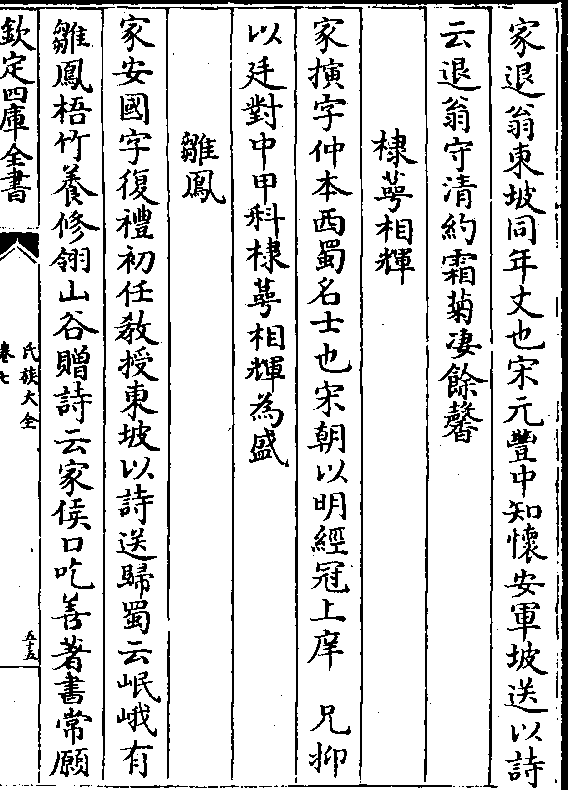 家退翁東坡同年丈也宋元豐中知懷安軍坡送以詩
云退翁守清約霜菊淒餘馨
棣萼相輝
家擯字仲本西蜀名士也宋朝以明經冠上庠　兄抑
以廷對中甲科棣萼相輝為盛
雛鳳
家安國字復禮初任教授東坡以詩送歸蜀云岷峨有
雛鳳梧竹養修翎山谷贈詩云家侯口吃善著書常願
欽定四庫全書
氏族大全
卷七
五五